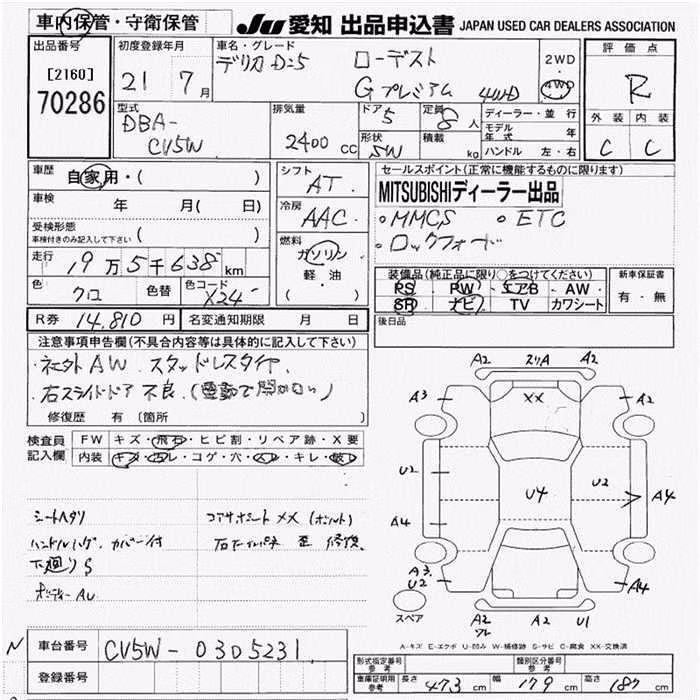 車内保管・守衛保管
JU 愛知 出品申込書 JAPAN USED CAR DEALERS ASSOCIATION
出品番号 初度登録年月 車名・グレード 評価点
[2160]
70286
21 7月
デリカD:5 ローデスト
Gプレミアム 4WD
2WD
・
4WD
R
型式 排気量 ドア 定員 ディーラー・並行 外装 内装
DBA-
CV5W
2400 cc
5
8人
形状 積載 モデル年式 年
SW kg ハンドル 左・右
C C
車歴 自家用・( )
車検 年 月( 日)
受検形態
車検付きのみ記入して下さい ( )
走行 19万5千638km
色 クロ 色替 色コード X24
シフト AT
冷房 AAC
燃料
ガソリン
軽・油
( )
セールスポイント(正常に機能するものに限ります)
MITSUBISHIディーラー出品
○MMCS ○ETC
○ロックフォード
装備品(純正品に限り○をつけてください) 新車保証書
PS PW エアB AW
SR ナビ TV カワシート
有・無
R券 14,810円 名変通知期限 月 日
後日品
注意事項申告欄(不具合内容等は具体的に記入して下さい)
・社外AW スタッドレスタイヤ
・右スライドドア不良(電動で開かない)
修復歴 有(箇所 )
検査員記入欄 FW キズ・飛石・ヒビ割・リペア跡・X要
内装 キズ・汚レ・コゲ・穴・スレ・キレ・破レ
シートヘタリ
下廻りS
コアサポート XX(ボルト)
A2 スリA A2
A3 XX A2
U2 U4 U2 A4
A4
A3 U2 A4
スペア
A2 A2 U1
A-キズ E-エクボ U-凹み W-補修跡 S-サビ C-腐食 XX-交換済
N 車台番号 CV5W-0305231
登録番号
形式指定番号参考 類別区分番号参考
車庫証明用参考 長さ 473cm 幅 179cm 高さ 187cm